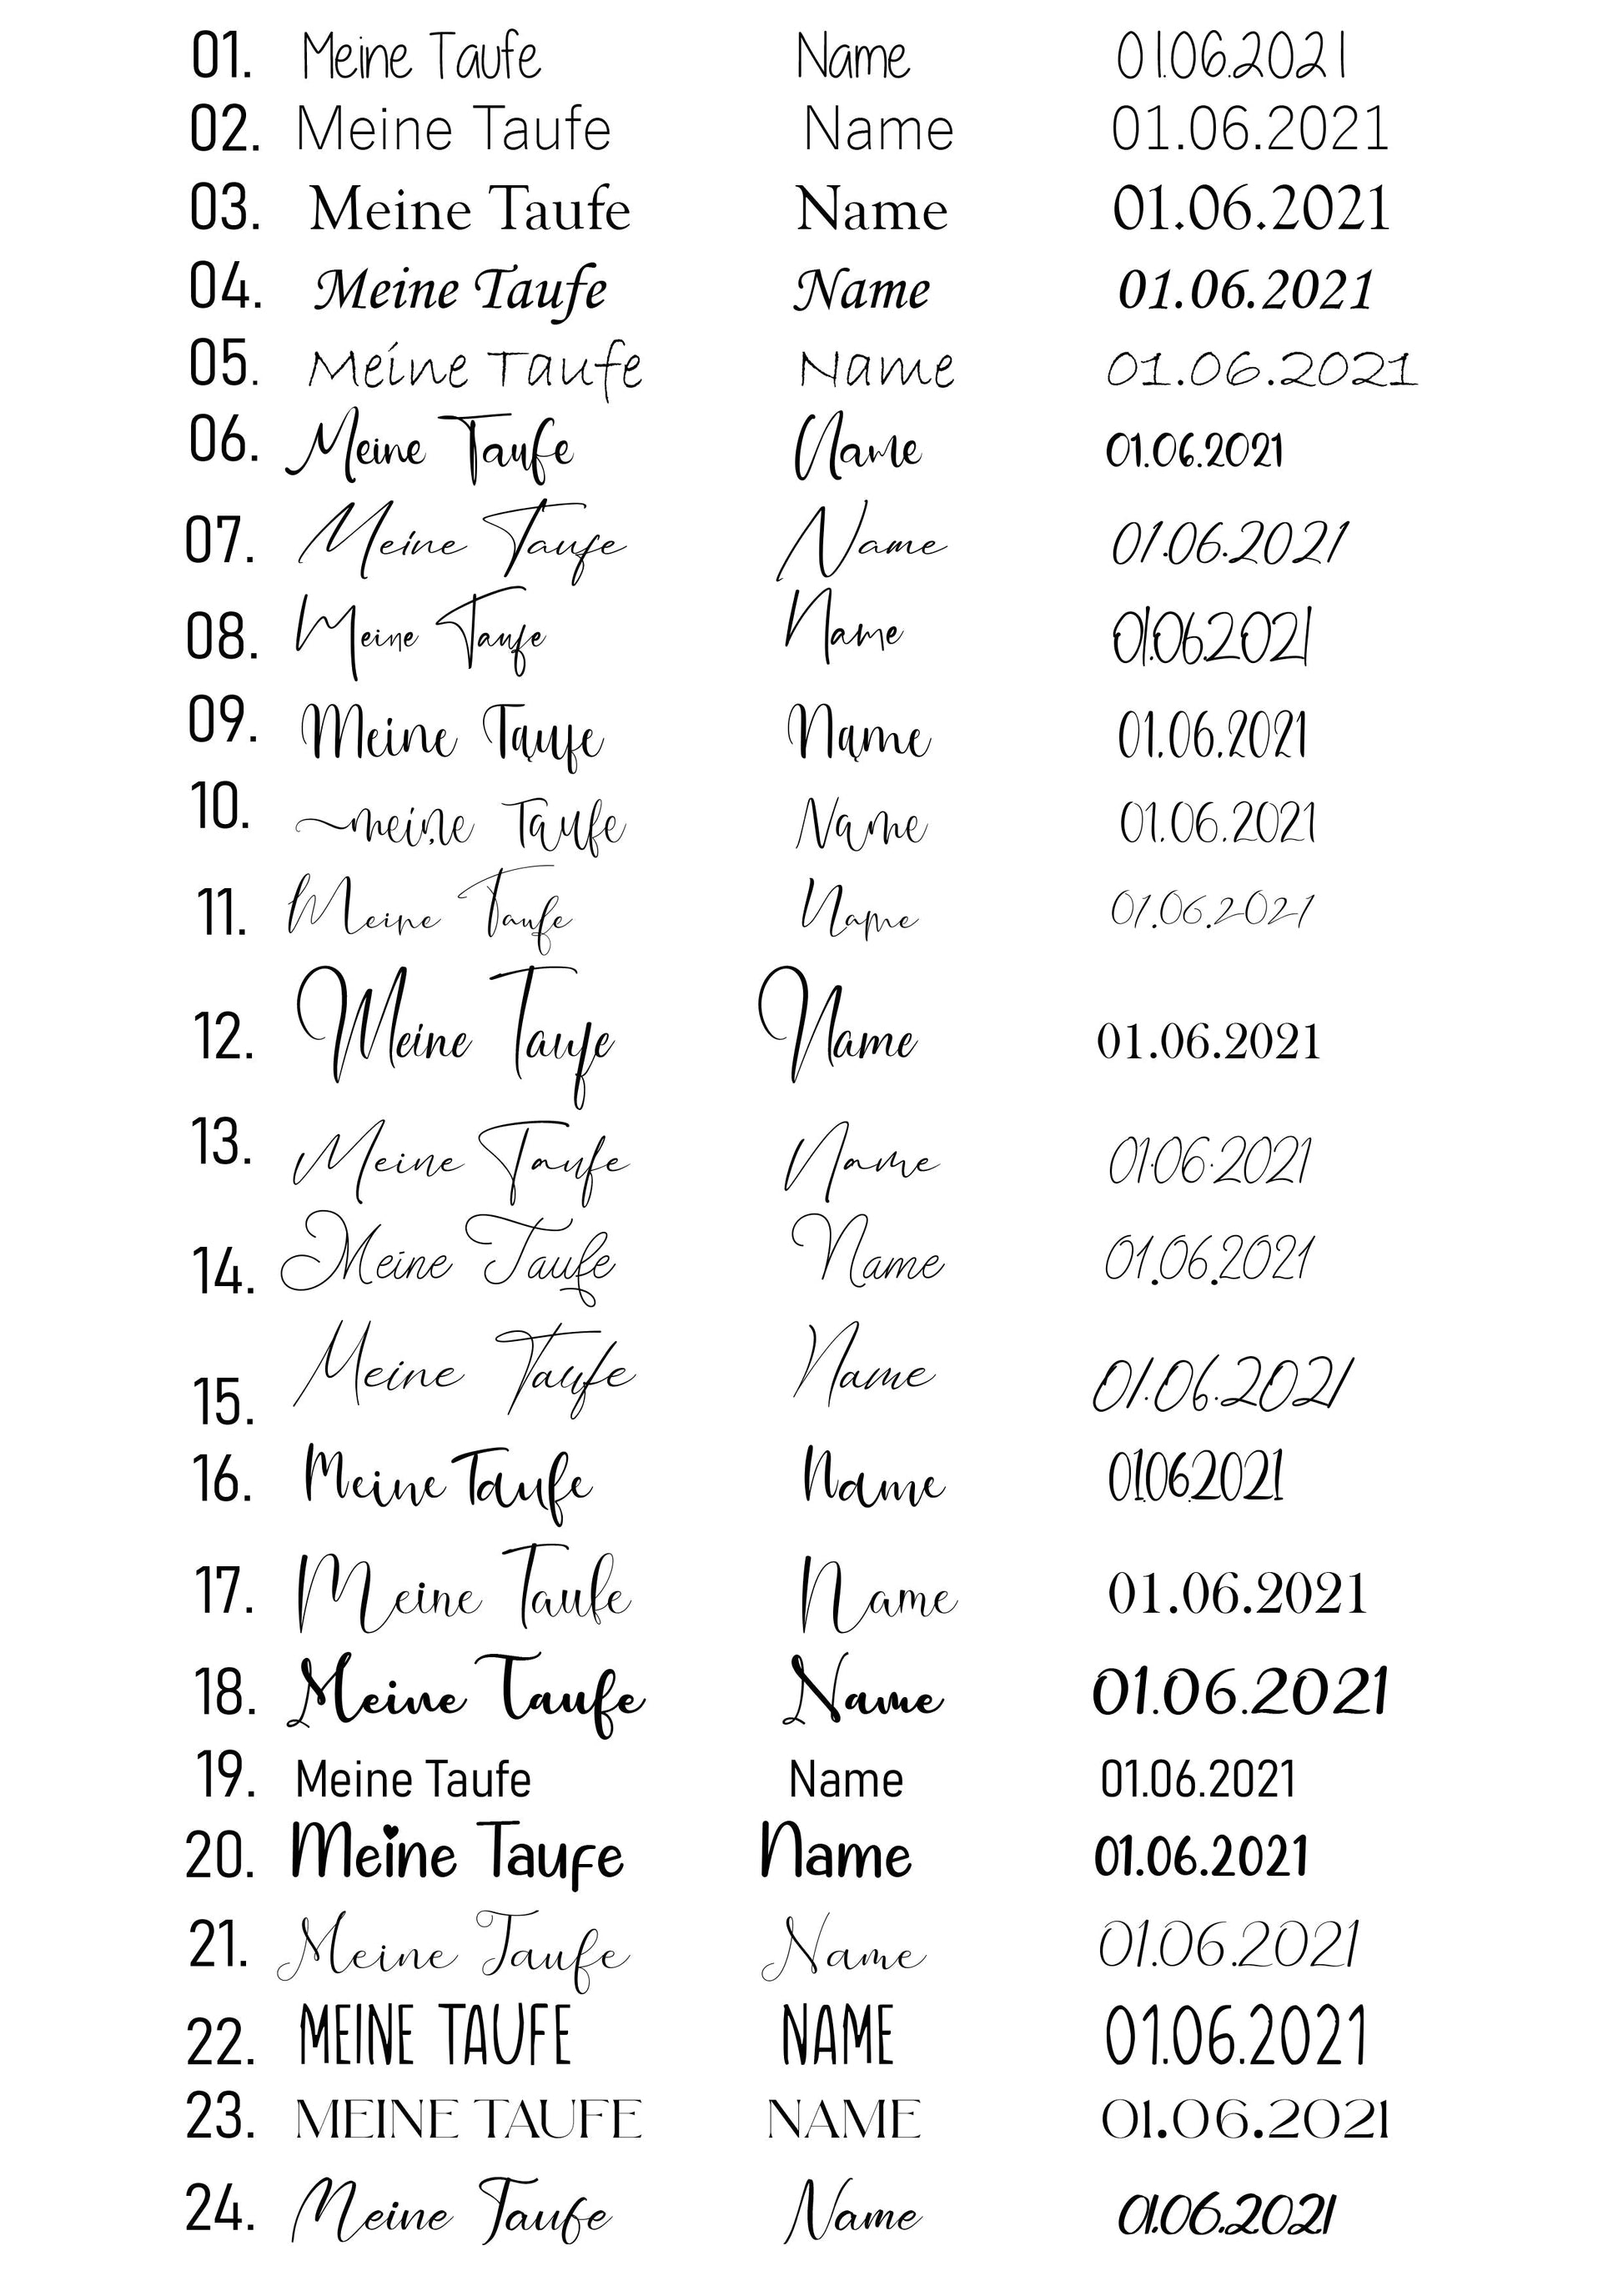 01. Meine Taufe Name 01.06.2021
02. Meine Taufe Name 01.06.2021
03. Meine Taufe Name 01.06.2021
04. Meine Taufe Name 01.06.2021
05. Meine Taufe Name 01.06.2021
06. Meine Taufe Name 01.06.2021
07. Meine Taufe Name 01.06.2021
08. Meine Taufe Name 01.06.2021
09. Meine Taufe Name 01.06.2021
10. meine Taufe Name 01.06.2021
11. Meine Taufe Name 01.06.2021
12. Meine Taufe Name 01.06.2021
13. Meine Taufe Name 01.06.2021
14. Meine Taufe Name 01.06.2021
15. Meine Taufe Name 01.06.2021
16. Meine Taufe Name 01.06.2021
17. Meine Taufe Name 01.06.2021
18. Meine Taufe Name 01.06.2021
19. Meine Taufe Name 01.06.2021
20. Meine Taufe Name 01.06.2021
21. Meine Taufe Name 01.06.2021
22. MEINE TAUFE NAME 01.06.2021
23. MEINE TAUFE NAME 01.06.2021
24. Meine Taufe Name 01.06.2021